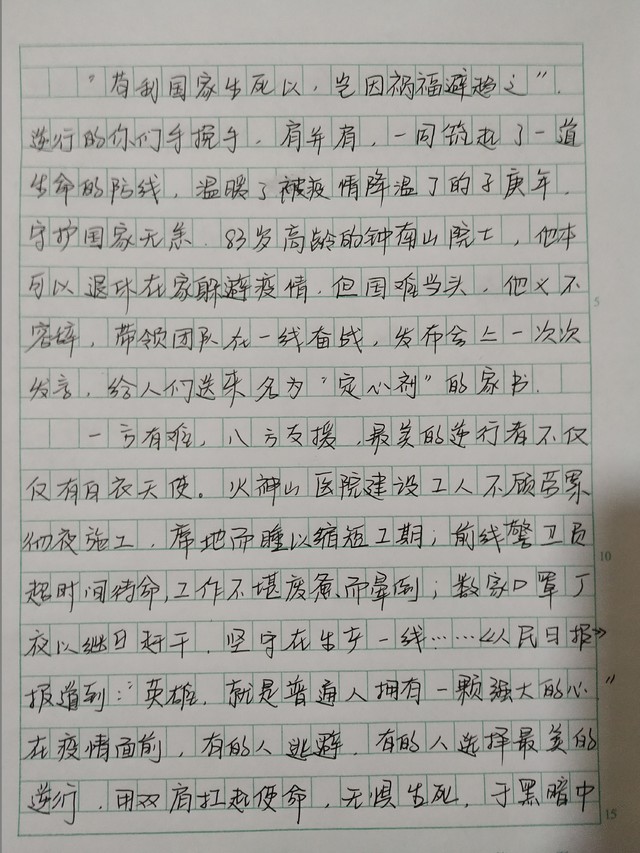 “苟利国家生死以，岂因祸福避趋之”.
逆行的你们手挽手，肩并肩，一同筑起了一道
生命的防线，温暖了被疫情降温了的子庚年，
守护国家无恙.83岁高龄的钟南山院士，他本
可以退休在家躲避疫情，但国难当头，他义不
容辞，带领团队在一线奋战，发布会上一次次
发言，给人们送来名为“定心剂”的家书.
一方有难，八方支援，最美的逆行者不仅
仅有白衣天使。火神山医院建设工人不顾劳累
彻夜施工，席地而睡以缩短工期；前线警卫员
超时间待命，工作不堪疲惫而晕倒；数家口罩厂
夜以继日赶干，坚守在生产一线……《人民日报》
报道到：“英雄，就是普通人拥有一颗强大的心”
在疫情面前，有的人逃避，有的人选择最美的
逆行，用双肩扛起使命，无惧生死，于黑暗中
5
10
15